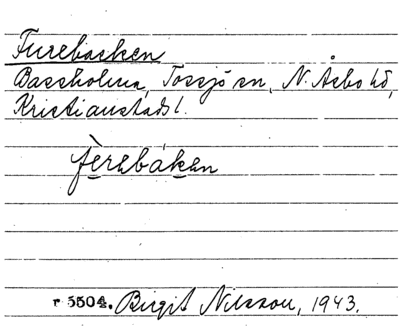 Furebacken
Bassholma, Tossjö sn, N. Åsbo hd,
Kristianstads l.
fèrebáken
r 5504. Birgit Nilsson, 1943.